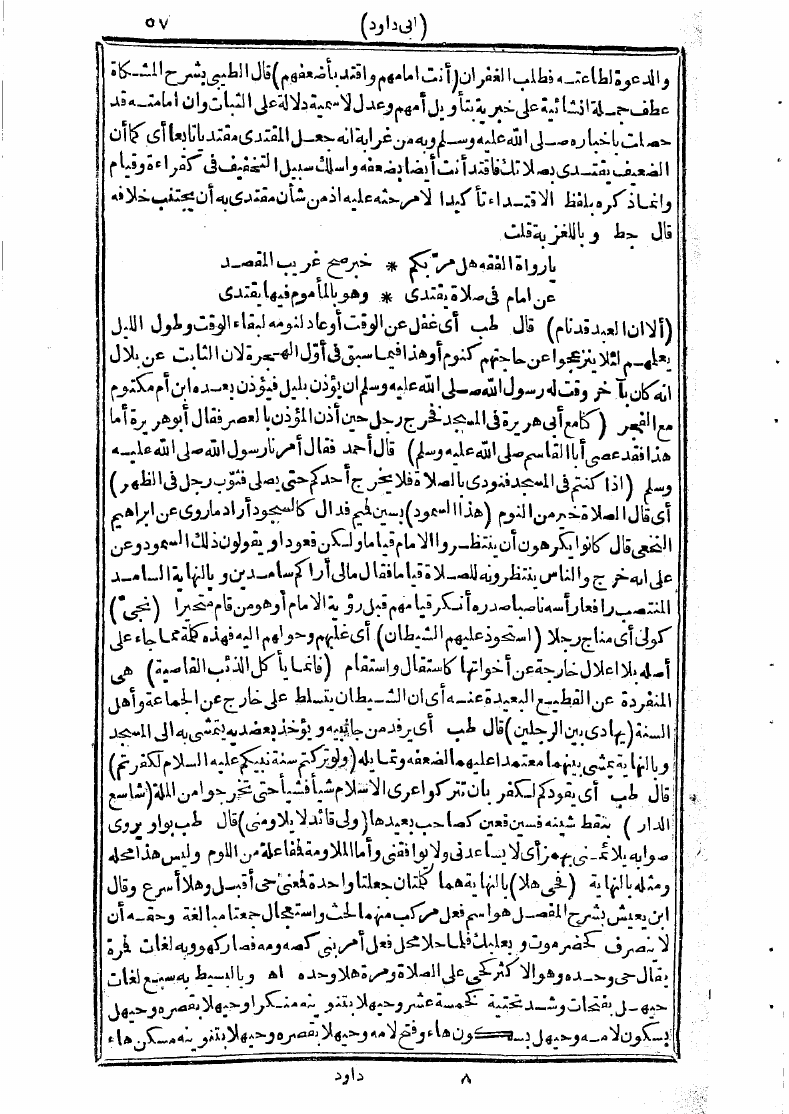 (ابى داود) ٥٧
والدعوة لطاعته فطلب الغفران (أنت امامهم واقتد بأضعفهم) قال الطيبى بشرح المشكاة
عطف جملة انشائية على خبرية بتأويل أمهم وعدل لاسمية دلالة على الثبات وان امامته قد
حصلت باخباره صلى الله عليه وسلم وبه من غرابة انه جعل المقتدى مقتديا تابعا أى كما أن
الضعيف يقتدى بصلاتك فاقتد أنت أيضا بضعفه واسلك سبيل التخفيف فى كقراءة وقيام
وانما ذكره بلفظ الاقتداء تأكيدا لامر حثه عليه اذ من شأن مقتدى به أن يجتنب خلافه
قال جط وباللغز به قلت
يا رواة الفقه هل مر بكم * خبر صح غريب المقصد
عن امام فى صلاة يقتدى * وهو بالمأموم فيها يقتدى
(ألا ان العبد قد نام) قال طب أى غفل عن الوقت أو عاد لنومه لبقاء الوقت وطول الليل
يعلمهم لئلا ينزعجوا عن حاجتهم كنوم أو هذا فيما سبق فى أول الهجرة لان الثابت عن بلال
انه كان بآخر وقت له رسول الله صلى الله عليه وسلم ان يؤذن بليل فيؤذن بعده ابن أم مكتوم
مع الفجر (كنا مع أبى هريرة فى المسجد فخرج رجل حين أذن المؤذن بالعصر فقال أبو هريرة أما
هذا فقد عصى أبا القاسم صلى الله عليه وسلم) قال أحمد فقال أمرنا رسول الله صلى الله عليه
وسلم (اذا كنتم فى المسجد فنودى بالصلاة فلا يخرج أحدكم حتى يصلى فثوّب رجل فى الظهر)
أى قال الصلاة خير من النوم (هذا السمود) بسين لميم فدال كالسجود أراد ما روى عن ابراهيم
النخعى قال كانوا يكرهون أن ينتظروا الامام قياما ولكن قعودا ويقولون ذلك السمود وعن
على انه خرج والناس ينتظرونه للصلاة قياما فقال مالى أراكم سامدين وبالنهاية السامد
المنتصب رافعا رأسه ناصبا صدره أنكر قيامهم قبل رؤية الامام أو هو من قام متحيرا (نجىّ)
كولى أى مناج رجلا (استحوذ عليهم الشيطان) أى غلبهم وحواهم اليه فهذه كلمة مما جاء على
أصله بلا اعلال خارجة عن أخواتها كاستقال واستقام (فانما يأكل الذئب القاصية) هى
المنفردة عن القطيع البعيدة عنه أى ان الشيطان يتسلط على خارج عن الجماعة وأهل
السنة (يهادى بين الرجلين) قال طب أى يرفد من جانبيه ويؤخذ بعضديه يتمشى به الى المسجد
وبالنهاية يمشى بينهما معتمدا عليهما لضعفه وتمايله (ولو تركتم سنة نبيكم عليه السلام لكفرتم)
قال طب أى يقودكم لكفر بأن تتركوا عرى الاسلام شيأ فشيأ حتى تخرجوا من الملة (شاسع
الدار) بنقط شينه فسين فعين كصاحب بعيدها (ولى قائد لا يلاومنى) قال طب بواو يروى
صوابه يلائمنى بهمز أى لا يساعدنى ولا يوافقنى وأما الملاومة فمفاعلة من اللوم وليس هذا محله
ومثله بالنهاية (فحى هلا) بالنهاية هما كلمتان جعلتا واحدة فمعنى حى أقبل وهلا أسرع وقال
ابن يعيش بشرح المفصل هو اسم فعل مركب منهما لحث واستعجال جمعتا مبالغة وحقه أن
لا ينصرف كحضرموت وبعلبك فلما حلا محل فعل أمر بنى كصه ومه فصار كهو وبه لغات فمرة
يقال حى وحده وهو الاكثر كحى على الصلاة ومرة هلا وحده اه وبالبسيط به سبع لغات
حيهل بفتحات وشد تحتية كخمسة عشر وحيهلا بتنوينه منكرا وحيهلا بقصره وحيهل
بسكون لامه وحيهل بسكون هاء وفتح لامه وحيهلا بقصره وحيهلا بتنوينه مسكن هاء
٨ داود